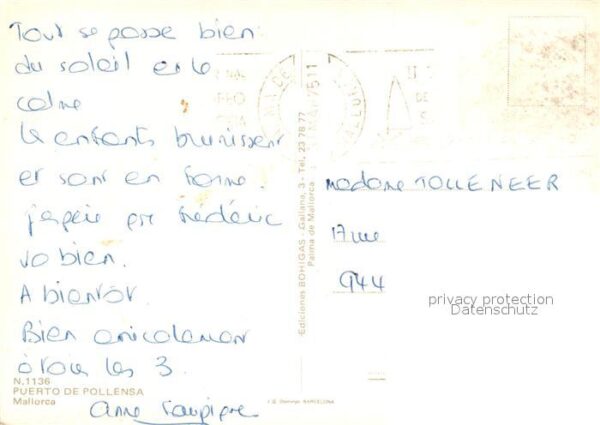 Tout se passe bien
du soleil et le
calme
les enfants brunissent
et sont en forme.
j'espère que Frédéric
va bien.
A bientôt.
Bien amicalement
à tous les 3
Anne
N. 1136
PUERTO DE POLLENSA
Mallorca
Ediciones BOHIGAS - Galiana, 3 - Tel. 23 78 77
Palma de Mallorca
BARCELONA
Madame TOLLENEER
17 rue
944
privacy protection
Datenschutz